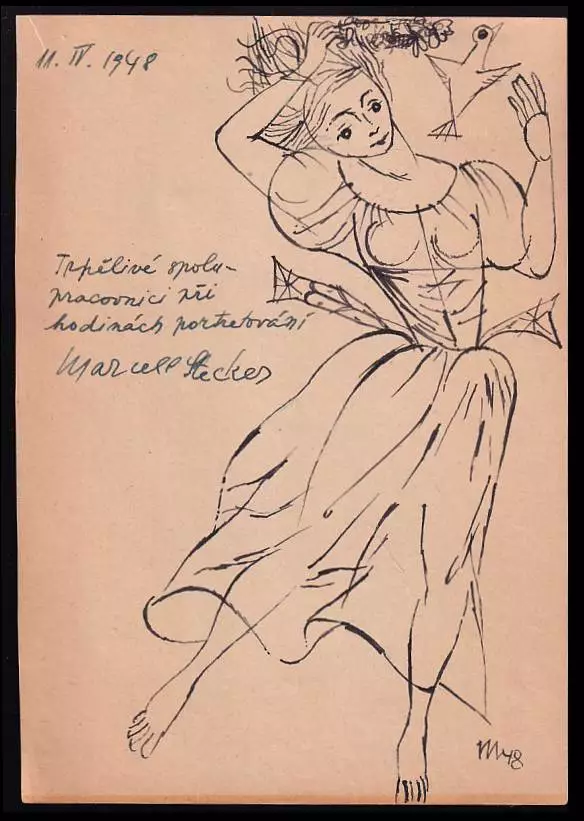 11. IV. 1948
Trpělivé spolu-
pracovnici při
hodinách portrétování
Marcell Stecker
M48